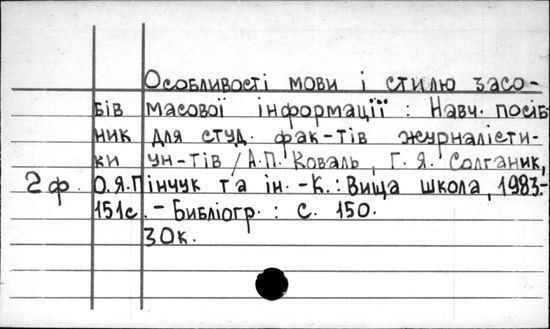 Особливості мови і стилю засо-
бів масової інформації : Навч. посіб
ник для студ. фак-тів журналісти-
ки ун-тів / А.П. Коваль, Г. Я. Солганик,
2ф. О.Я.Пінчук та ін. -К.: Вища школа, 1983.-
151с. - Библіогр. : с. 150.
30к.